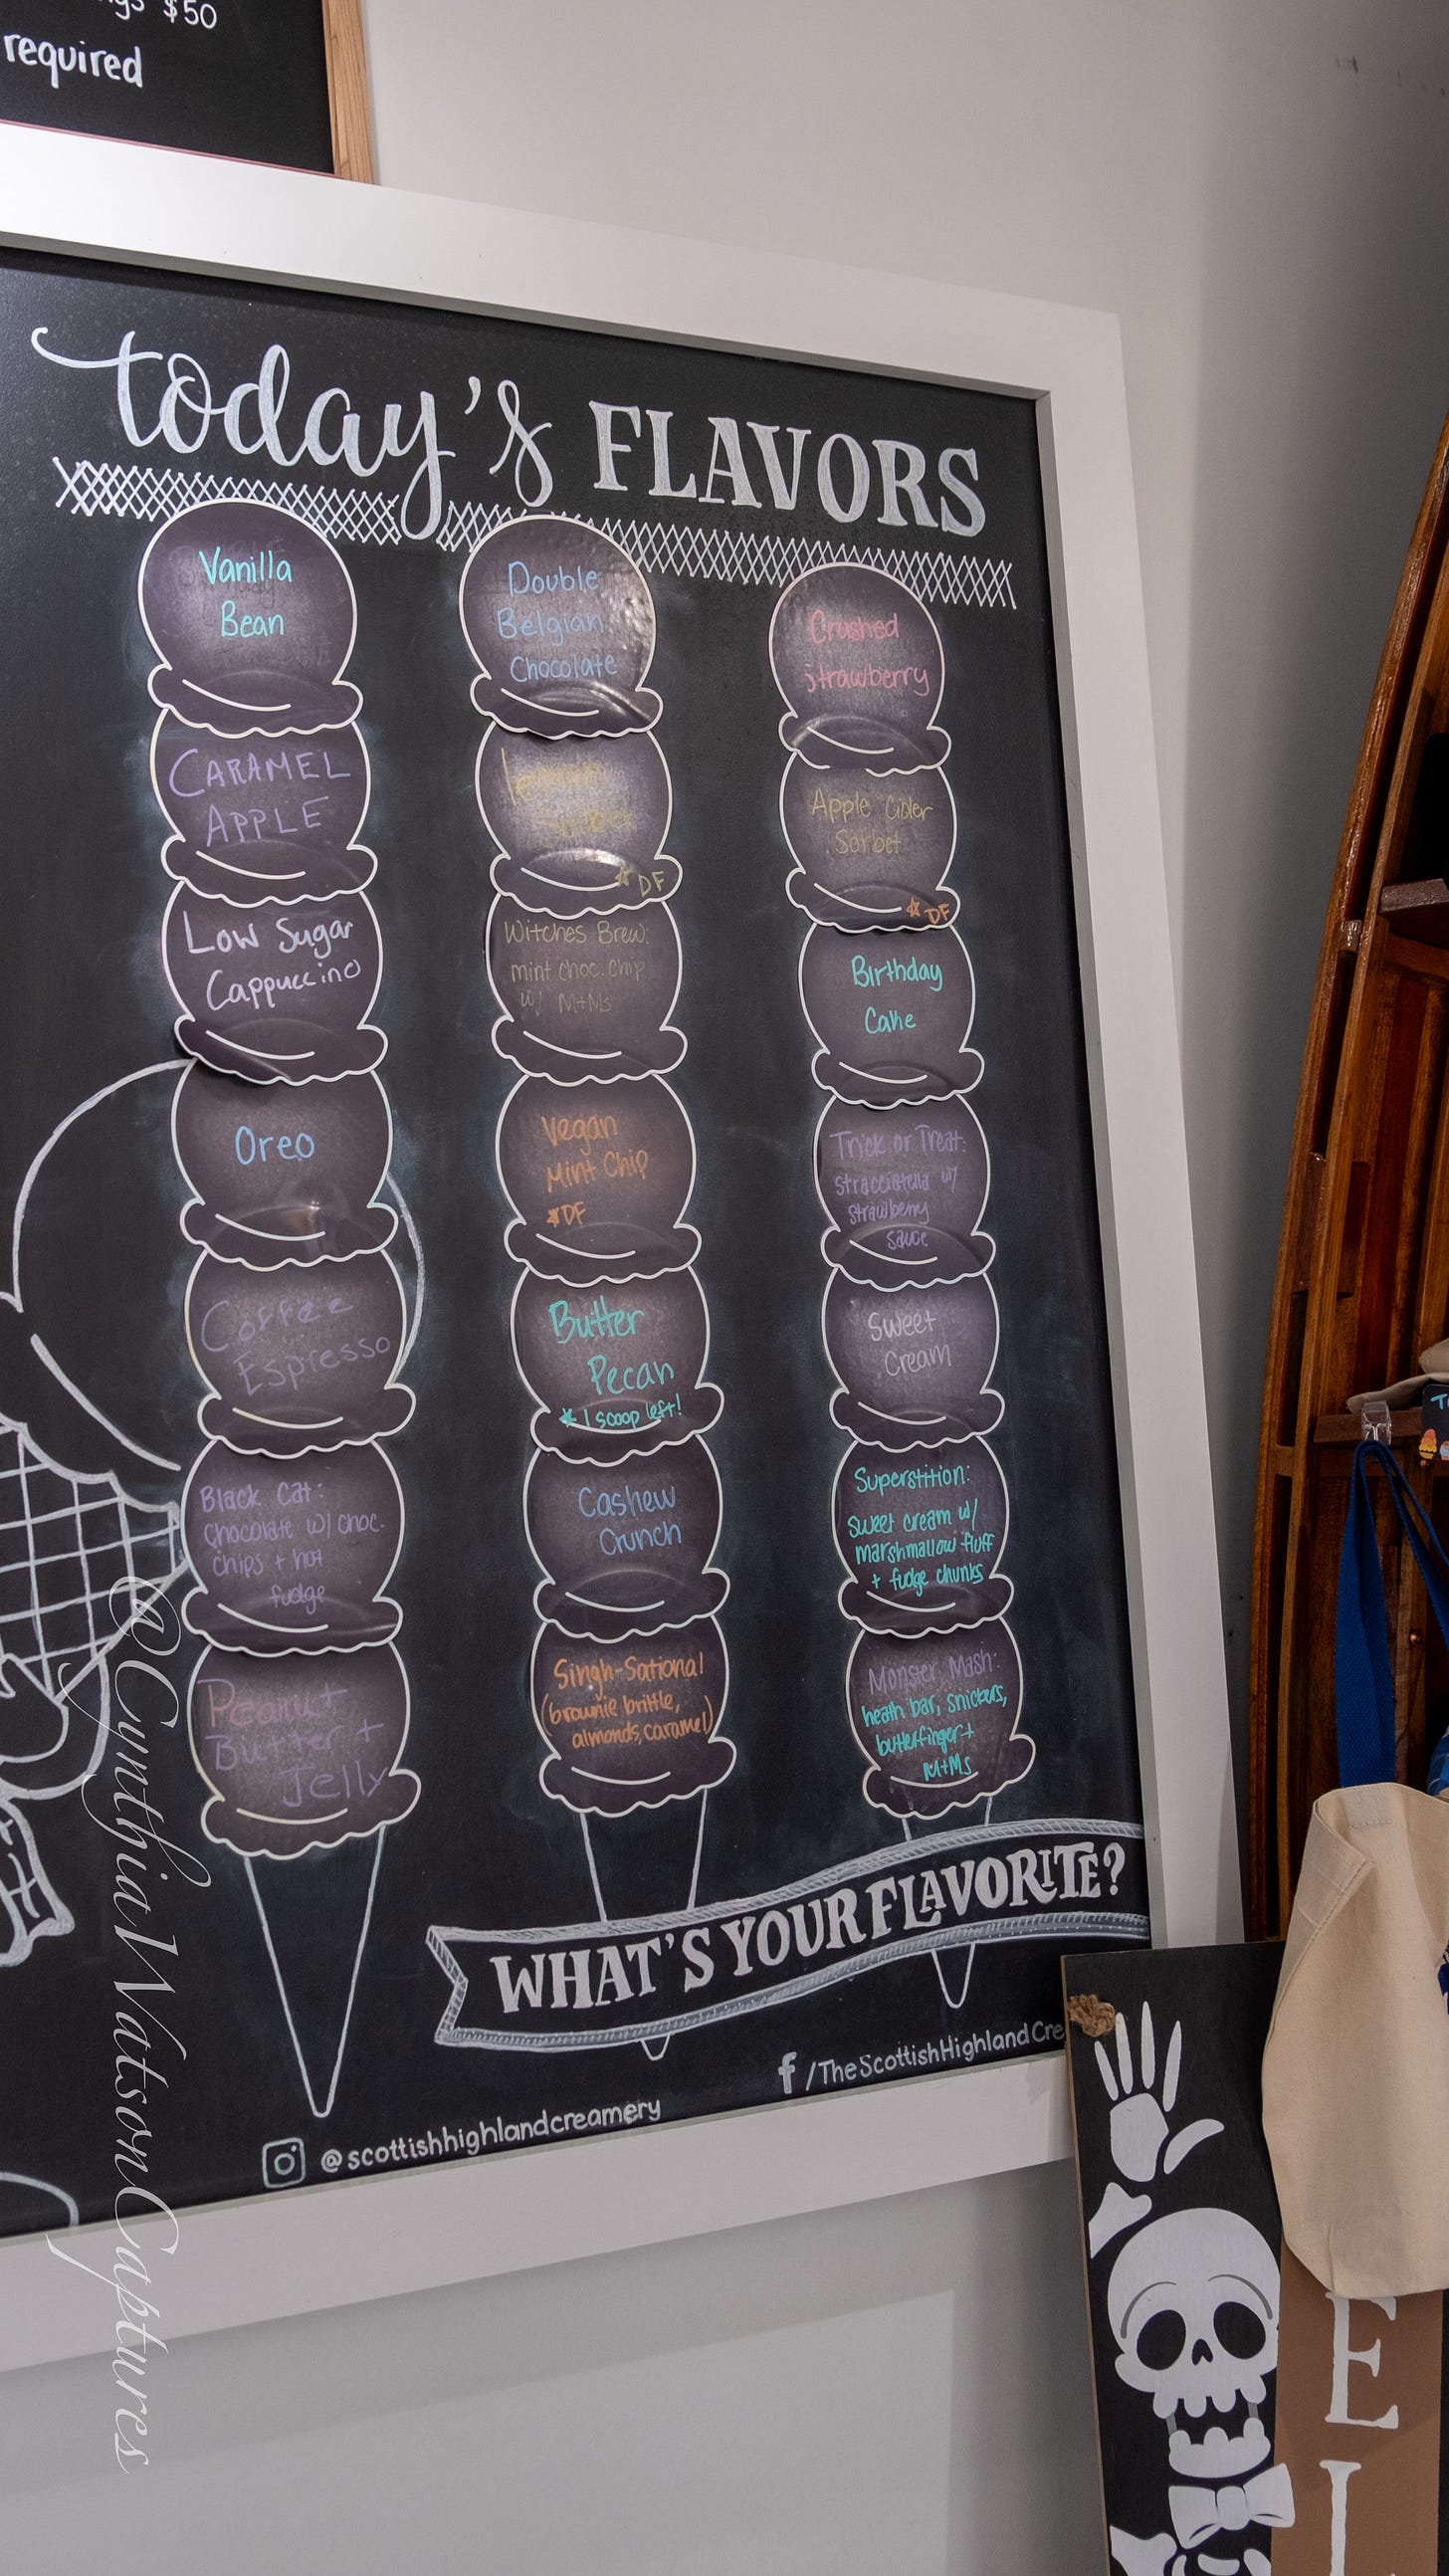 $50
required
today's FLAVORS
Vanilla
Bean
CARAMEL
APPLE
Low Sugar
Cappuccino
Oreo
Coffee
Espresso
Black Cat:
Chocolate w/ choc.
chips + hot
fudge
Peanut
Butter +
Jelly
Double
Belgian
Chocolate
lemon
Sorbet
☆ DF
Witches Brew:
mint choc. chip
w/ M+Ms
Vegan
Mint Chip
☆DF
Butter
Pecan
☆ 1 scoop left!
Cashew
Crunch
Singh-Sational
(brownie brittle,
almonds, caramel)
Crushed
strawberry
Apple Cider
Sorbet
☆ DF
Birthday
Cake
Trick or Treat:
stracciatella w/
strawberry
sauce
Sweet
Cream
Superstition:
Sweet cream w/
marshmallow fluff
+ fudge chunks
Monster Mash:
heath bar, snickers,
butterfinger +
M+Ms
WHAT'S YOUR FLAVORITE?
f /TheScottishHighlandCre
@scottishhighlandcreamery
@CynthiaWatsonCaptures
E
L